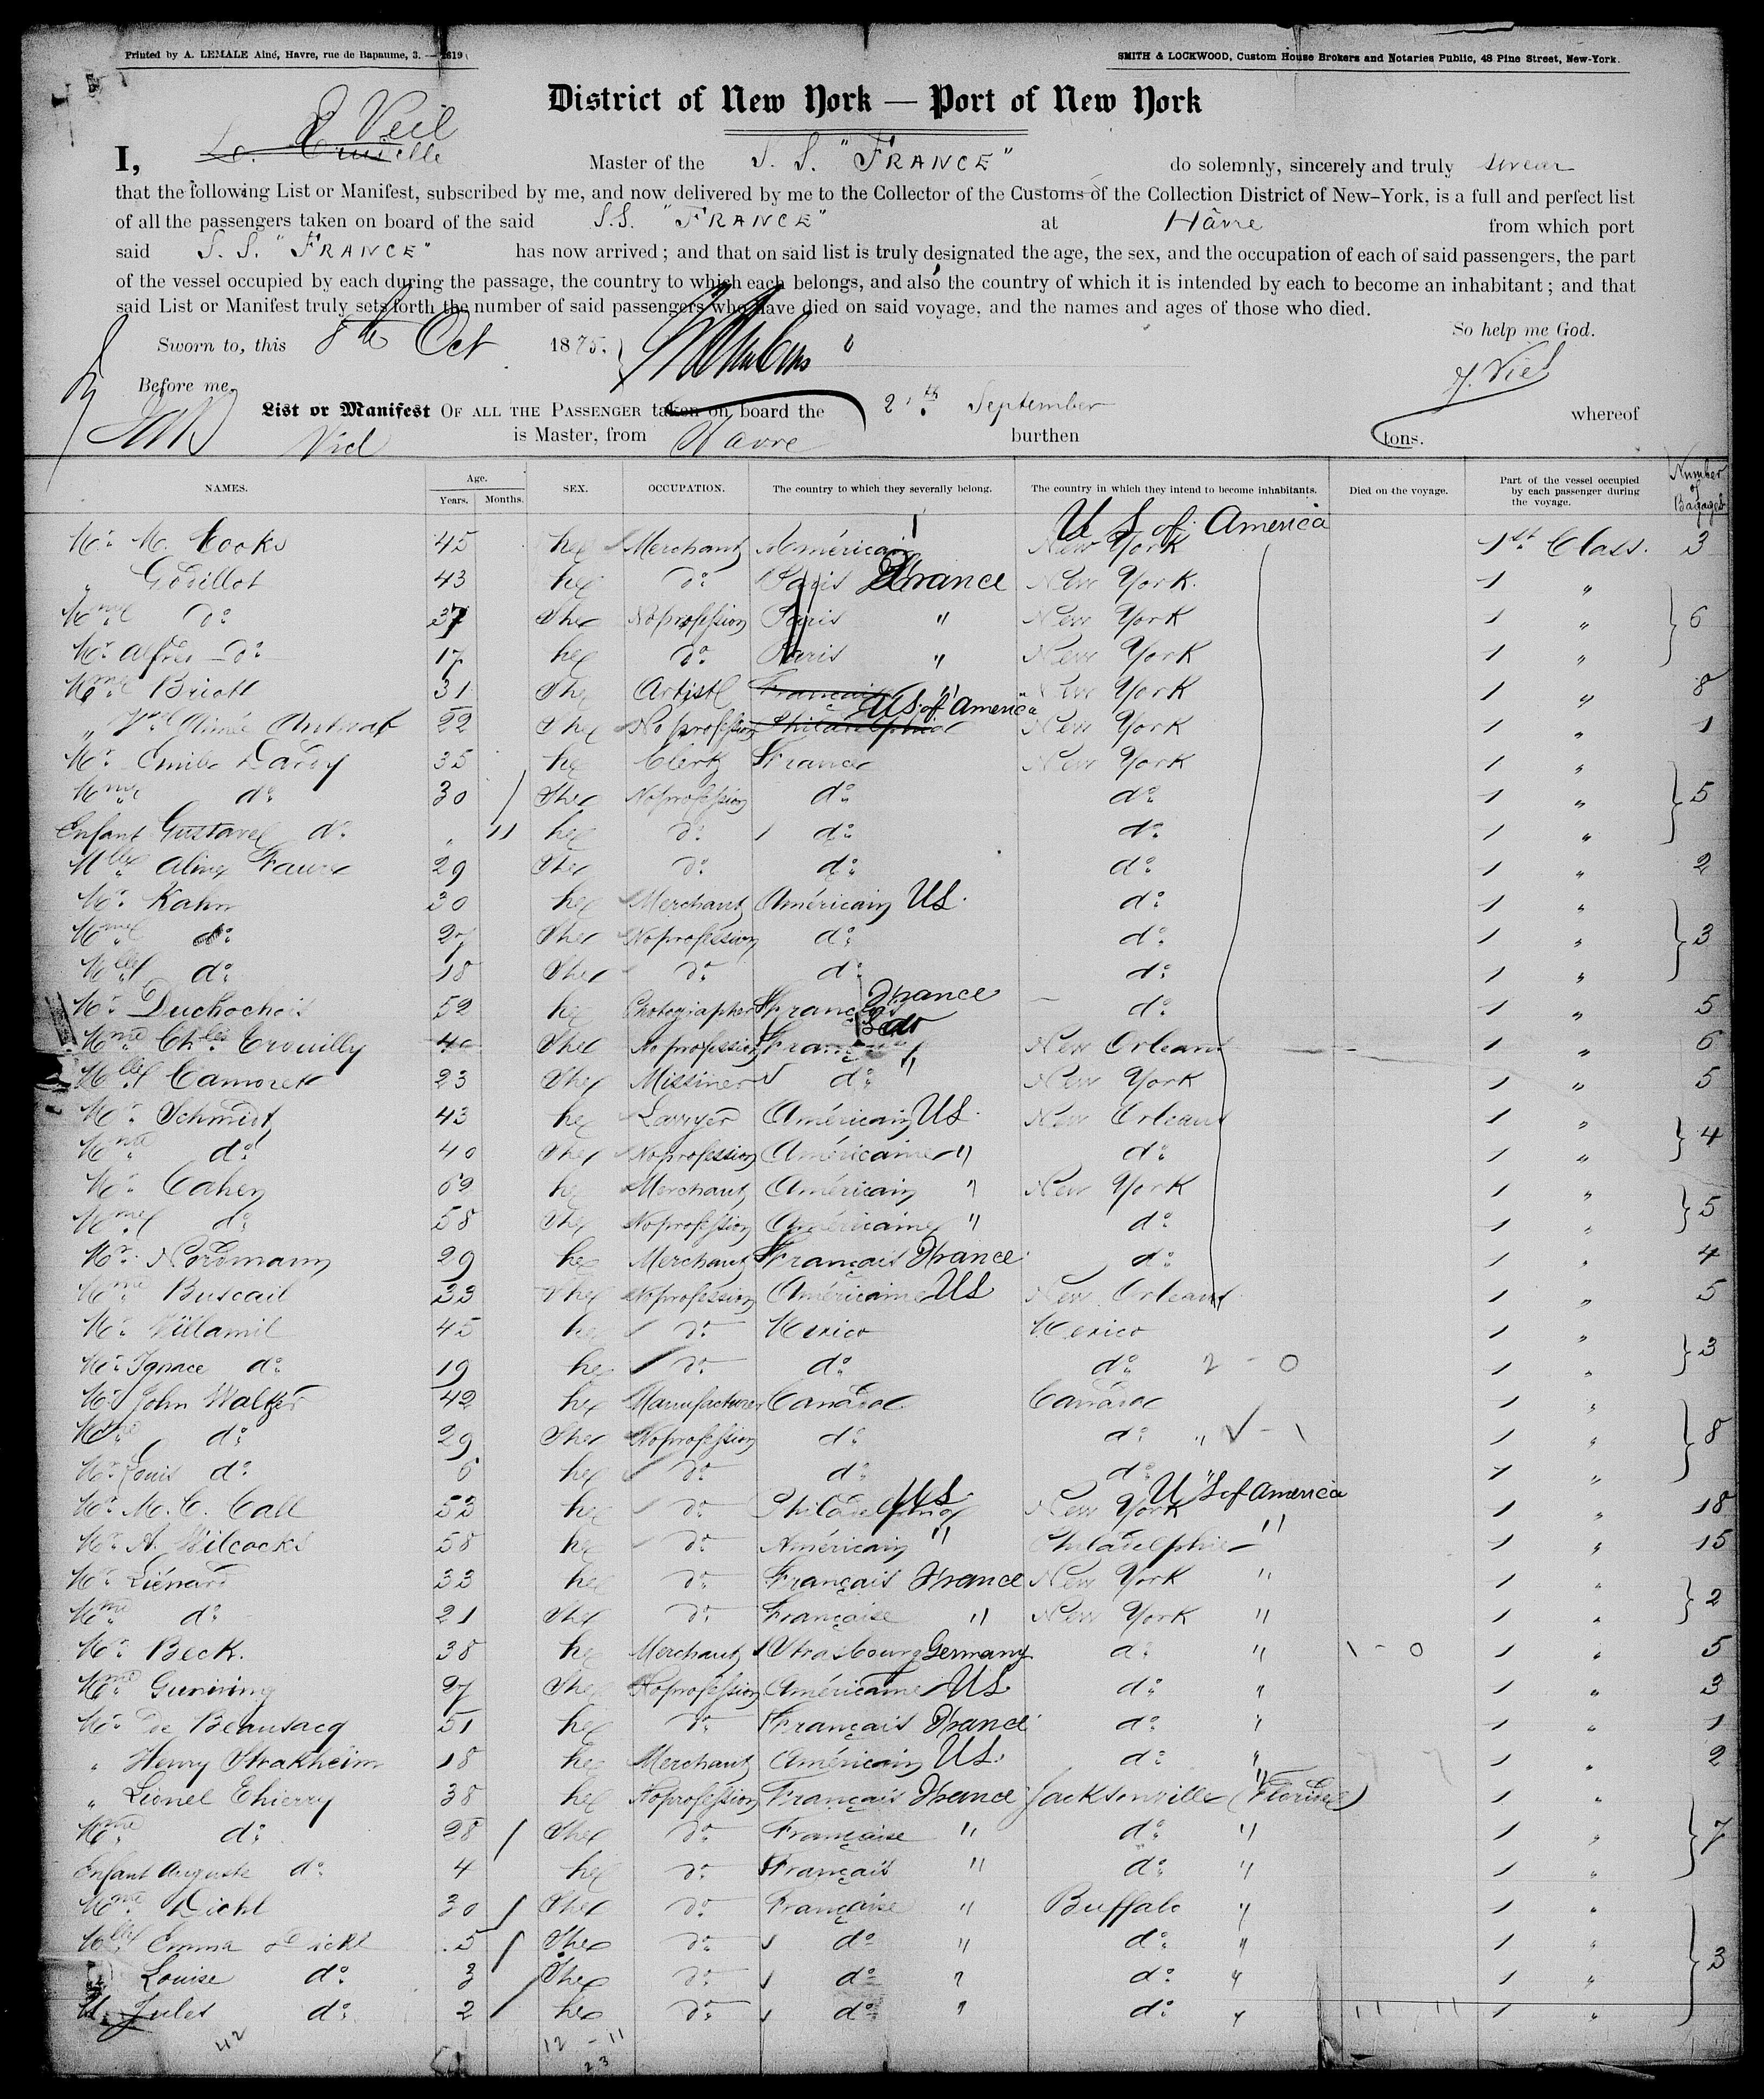 Printed by A. LEMALE Ainé, Havre, rue de Bapaume, 3. — 1819
SMITH & LOCKWOOD, Custom House Brokers and Notaries Public, 48 Pine Street, New-York.
District of New York — Port of New York
I, Master of the S. S. "FRANCE" do solemnly, sincerely and truly swear
that the following List or Manifest, subscribed by me, and now delivered by me to the Collector of the Customs of the Collection District of New-York, is a full and perfect list
of all the passengers taken on board of the said S.S. "FRANCE" at Hâvre from which port
said S. S. "FRANCE" has now arrived; and that on said list is truly designated the age, the sex, and the occupation of each of said passengers, the part
of the vessel occupied by each during the passage, the country to which each belongs, and also the country of which it is intended by each to become an inhabitant; and that
said List or Manifest truly sets forth the number of said passengers who have died on said voyage, and the names and ages of those who died.
So help me God.
Sworn to, this 8th Oct 1875.
Before me,
List or Manifest OF ALL THE PASSENGER taken on board the 21th September whereof
Viel is Master, from Havre burthen tons.
NAMES. Age. Years. Months. SEX. OCCUPATION. The country to which they severally belong. The country in which they intend to become inhabitants. Died on the voyage. Part of the vessel occupied by each passenger during the voyage. Number of Bagages
U S of America
Mr. M. Cooks 45 he Merchant Américain New York 1st Class. 3
" Godillot 43 he do Paris France New York 1 "
Mme do 37 She No profession Paris " New York 1 " 6
Mr. Alfred do 17 he do Paris " New York 1 "
Mme Briott 31 She Artist Français " New York 1 " 8
" Aimée 22 She No profession Philadelphia U S of America New York 1 " 1
Mr. Emile Dardy 35 he Clerk France New York 1 "
Mme do 30 She No profession do do 1 " 5
Enfant Gustave do " 11 he do do do 1 "
Mlle Aline Faure 29 She do do do 1 " 2
Mr. Kahn 30 he Merchant Américain US. do 1 "
Mme do 27 She No profession do do 1 " 3
Mlle do 18 She do do do 1 "
Mr. Duchochois 52 he Photographer France do 1 " 5
Mme Chles Crouilly 40 She No profession do New Orleans 1 " 6
Mlle Camoret 23 She Milliner do " New York 1 " 5
Mr. Schmidt 43 he Lawyer Américain US. New Orleans 1 "
Mme do 40 She No profession Américaine " do 1 " 4
Mr. Cahen 69 he Merchant Américain " New York 1 "
Mme do 58 She No profession Américaine " do 1 " 5
Mr. Nordmann 29 he Merchant Français France do 1 " 4
Mme Buscail 33 She No profession Américaine US New Orleans 1 " 5
Mr. Villamil 45 he do Mexico Mexico 1 "
Mr. Ignace do 19 he do do do 2 - 0 1 " 3
Mr. John Walker 42 he Manufacturer Canada Canada 1 "
Mme do 29 She No profession do do " 1 " 8
Mr. Louis do 6 he do do do " 1 "
Mr. M. C. Call 53 he do Philadelphia US New York U S of America 1 " 18
Mr. A. Wilcocks 58 he do Américain " Philadelphie " 1 " 15
Mr. Liénard 33 he do Français France New York " 1 "
Mme do 21 She do Française " New York " 1 " 2
Mr. Beck. 38 he Merchant Strasbourg Germany do " 1 - 0 1 " 5
Mme 27 She No profession Américaine US do " 1 " 3
Mr. De Beausacq 51 he do Français France do " 1 " 1
" Henry Strakheim 18 he Merchant Américain US. do " 1 " 2
" Lionel Thierry 38 he No profession Français France Jacksonville (Floride) 1 "
Mme do 28 She do Française " do " 1 " 7
Enfant Auguste do 4 he do Français " do " 1 "
Mme Dichl 30 She do Française " Buffalo " 1 "
Mlle Emma Dichl 5 She do do " do " 1 "
Louise do 3 She do do " do " 1 " 3
Jules do 2 he do do " do " 1 "
42
12 - 11
23